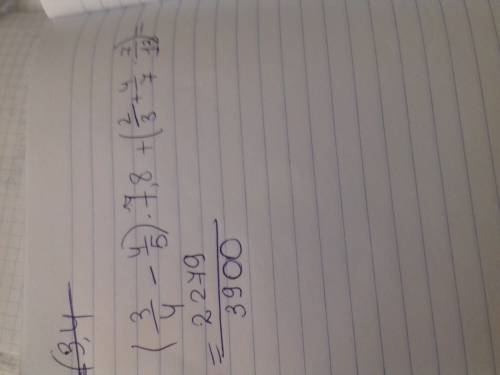 (3,4
(3/4 - 4/5) · 7,8 + (2/3 + 4/7 · 7/13) =
= 2279/3900